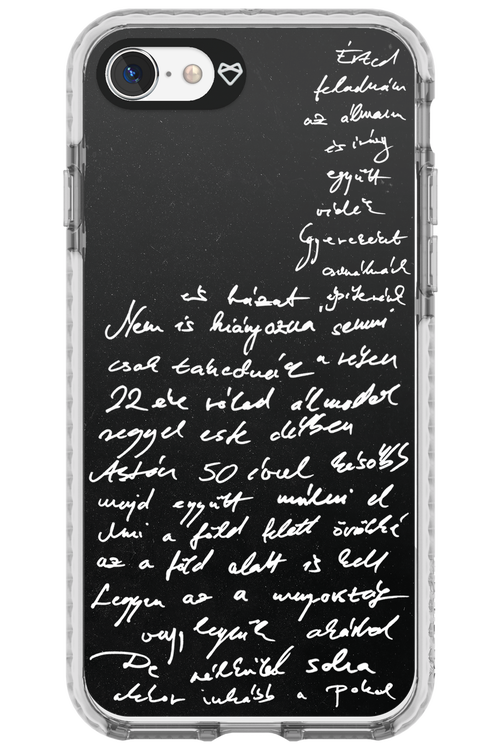 Érted
feladnám
az álmaim
és így
együtt
vidék
Gyerekeket
csinálnánk
és házat építenénk
Nem is hiányozna semmi
csak takednék a részem
22 éve rólad álmodok
reggel este délben
Aztán 50 évvel később
majd együtt múlni el
Ami a föld felett örökké
az a föld alatt is kell
Legyen az a mennyország
vagy legyünk akárhol
De nélküled soha
akkor inkább a Pokol